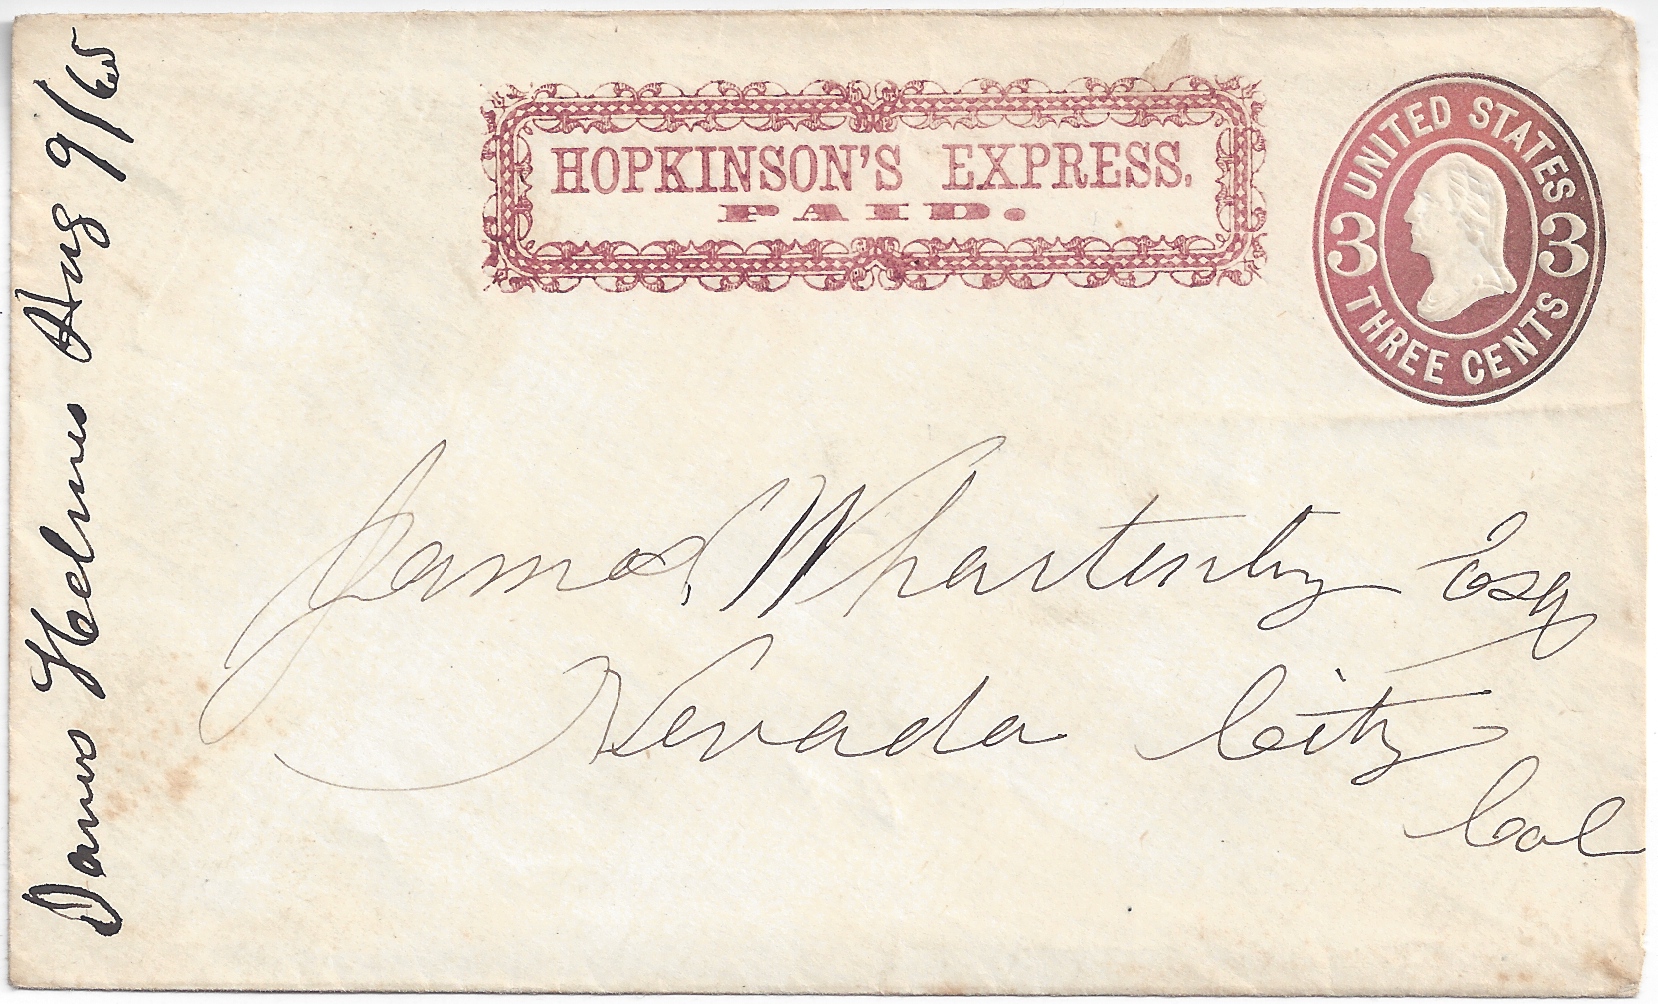 HOPKINSON'S EXPRESS.
PAID.
UNITED STATES
3 3
THREE CENTS
James Whartenby Esq
Nevada City
Cal
Aug 9/65